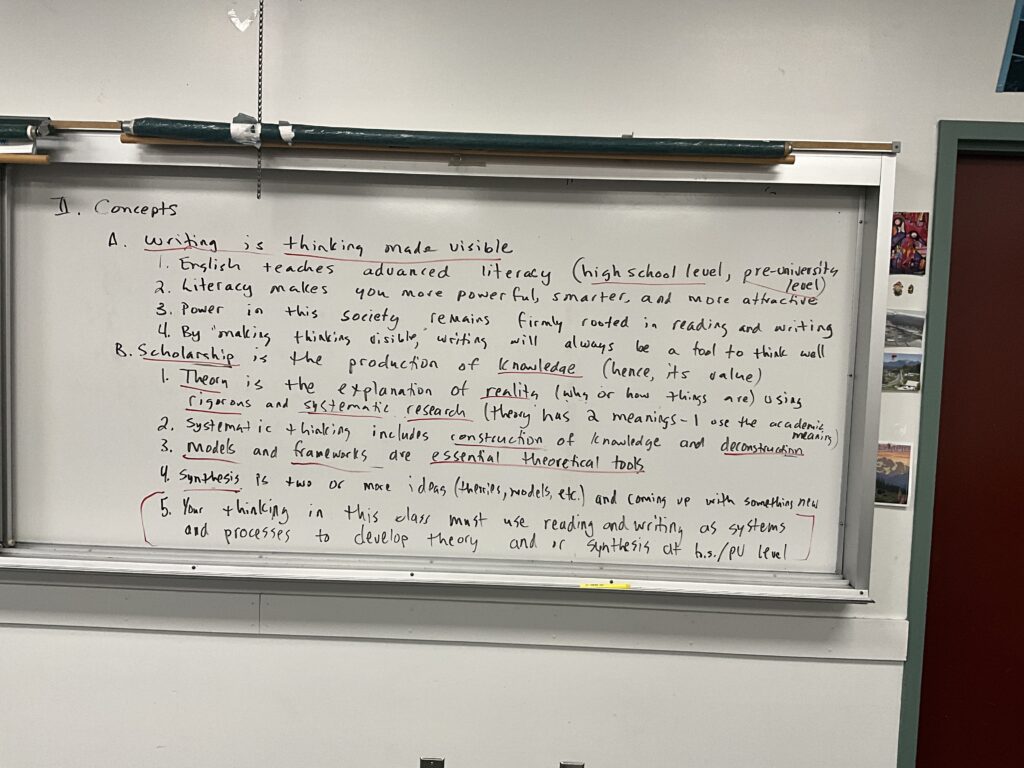 II. Concepts
A. Writing is thinking made visible
1. English teaches advanced literacy (high school level, pre-university level)
2. Literacy makes you more powerful, smarter, and more attractive
3. Power in this society remains firmly rooted in reading and writing
4. By "making thinking visible," writing will always be a tool to think well
B. Scholarship is the production of knowledge (hence, its value)
1. Theory is the explanation of reality (why or how things are) using
rigorous and systematic research (theory has 2 meanings - I use the academic meaning)
2. Systematic thinking includes construction of knowledge and deconstruction
3. Models and frameworks are essential theoretical tools
4. Synthesis is two or more ideas (theories, models, etc.) and coming up with something new
5. Your thinking in this class must use reading and writing as systems
and processes to develop theory and or synthesis at h.s./PU level